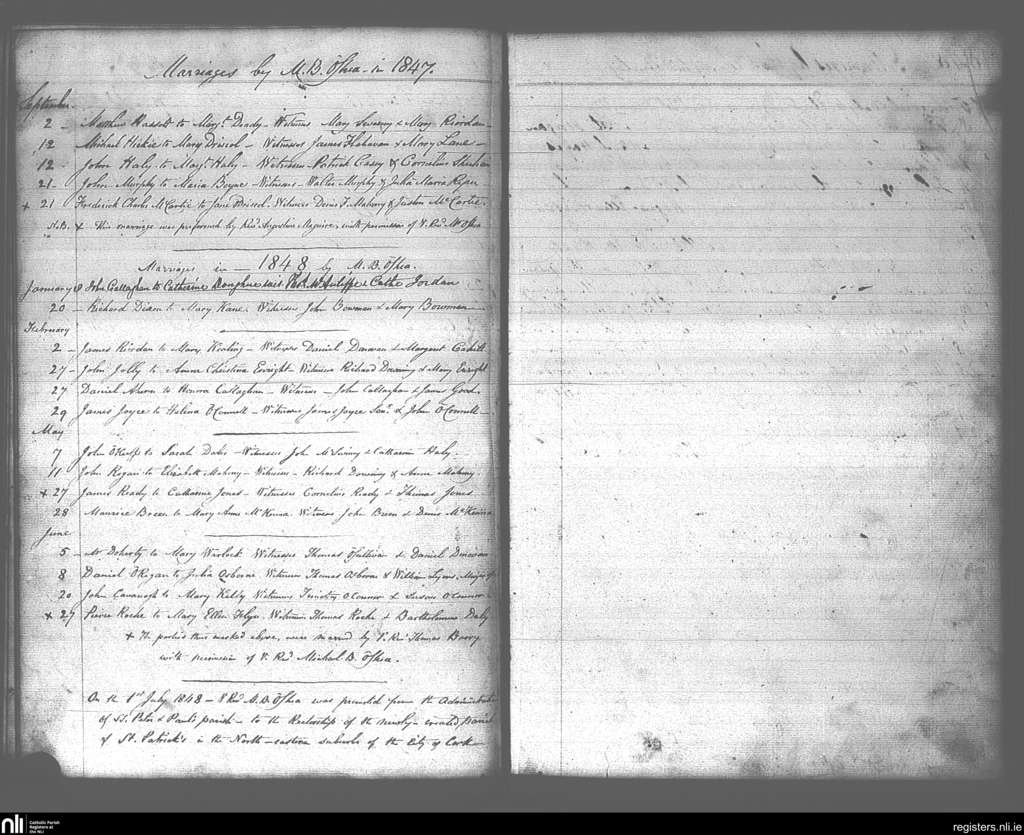 Marriages by M. B. O'Shea in 1847.
September
2 - Hassett to Margt. Deady - Witnesses Mary Sweeny & Mary Riordan -
12 Michael Hickie to Mary Driscol - Witnesses James Flahavan & Mary Lane -
12 - John Haly to Margt. Haly - Witnesses Patrick Casey & Cornelius Sheehan
21 - John Murphy to Maria Boyne - Witnesses - Walter Murphy & Julia Maria Ryan
x 21 Frederick Charles McCartie to Jane Driscol. Witnesses Denis F. Mahony & Justin McCartie.
N.B. x This marriage was performed by Revd. Augustine Maguire, with permission of V. Revd. Mr O'Shea
Marriages in - 1848 by M. B. O'Shea.
January 8 John Callaghan to Catherine Donoghue McAuliffe & Cathe Jordan
20 - Richard Dixon to Mary Kane. Witnesses John Bowman & Mary Bowman
February
2 - James Riordan to Mary - Witnesses Daniel Donovan & Margaret Cahill
27 - John Jolly to Anna Christina Enright Witnesses Richard Downing & Mary Enright
27 Daniel Ahern to Honora Callaghan - Witnesses - John Callaghan & James Good.
29 James Joyce to Helena O'Connell - Witnesses James Joyce Senr. & John O'Connell -
May
7 John O'Keeffe to Sarah Daly - Witnesses John McSwiny & Catharine Haly.
11 John Regan to Elizabeth Mahony - Witnesses - Richard Downing & Anne Mahony.
x 27 James Ready to Catharine Jones - Witnesses Cornelius Ready & Thomas Jones
28 Maurice Breen to Mary Anne McKenna. Witnesses John Breen & Denis McKenna
June
5 - Mr Doherty to Mary Warlock Witnesses Thomas O'Sullivan & Daniel Donovan
8 Daniel O'Regan to Julia Osborne Witnesses Thomas Osborne & William Lyons
20 John Cavanagh to Mary Kelly Witnesses Timothy O'Connor & O'Connor
x 27 Pierce Roche to Mary Ellen Witnesses Thomas Roche & Bartholomew Daly
x The parties thus marked above, were married by V. Revd. Thomas Barry
with permission of V. Revd. Michael B. O'Shea.
On the 1st July 1848 - V Revd. M. B. O'Shea was promoted from the Administration
of SS. Peter & Paul's parish - to the Rectorship of the newly - created parish
of St. Patrick's in the North - eastern suburbs of the City of Cork
nli
Catholic Parish
Registers at
the NLI
registers.nli.ie